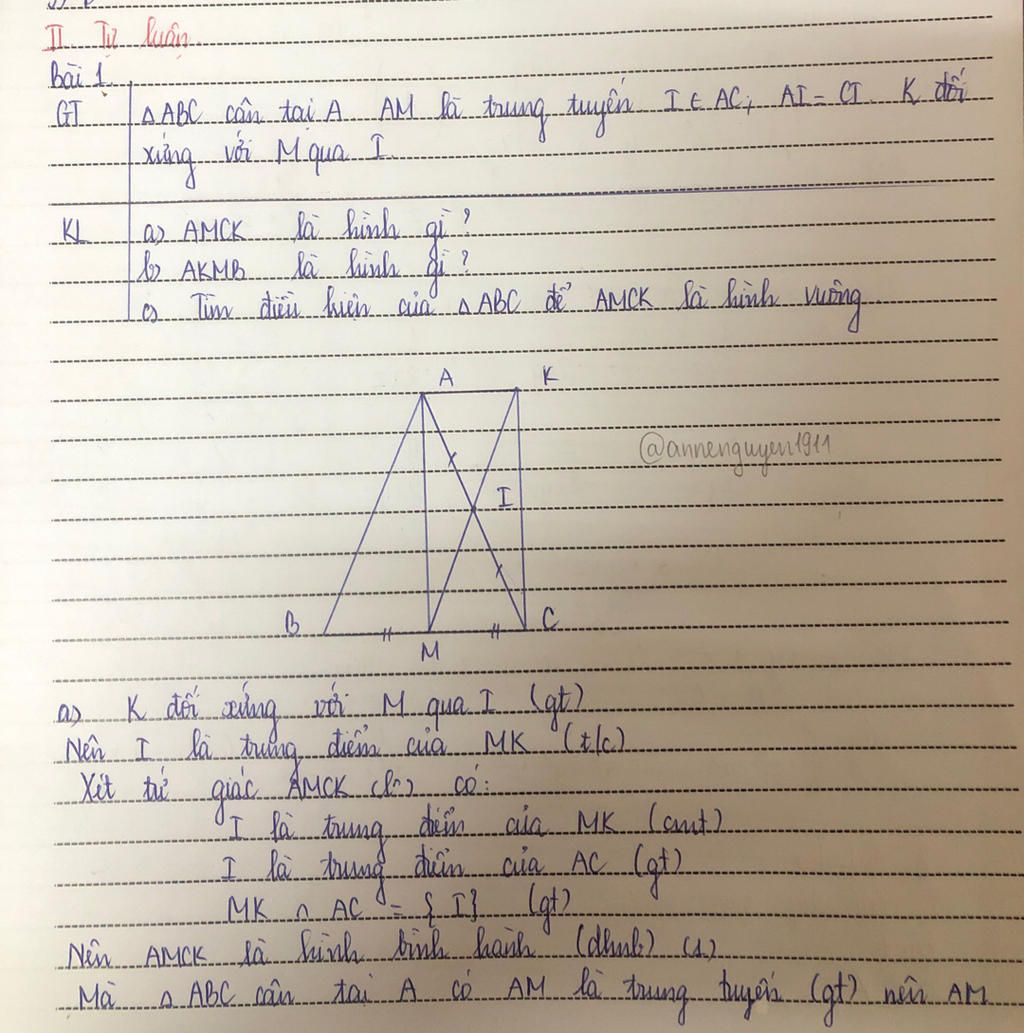 II. Tự luận.
Bài 1.
GT △ABC cân tại A AM là trung tuyến I ∈ AC; AI = CI K đối
xứng với M qua I.
KL a) AMCK là hình gì?
b) AKMB là hình gì?
c) Tìm điều kiện của △ABC để AMCK là hình vuông
A K
@annenguyen1911
I
B C
M
a) K đối xứng với M qua I (gt)
Nên I là trung điểm của MK (t/c)
Xét tứ giác AMCK có:
I là trung điểm của MK (cmt)
I là trung điểm của AC (gt)
MK ∩ AC = {I} (gt)
Nên AMCK là hình bình hành (dhnb) (1)
Mà △ABC cân tại A có AM là trung tuyến (gt) nên AM